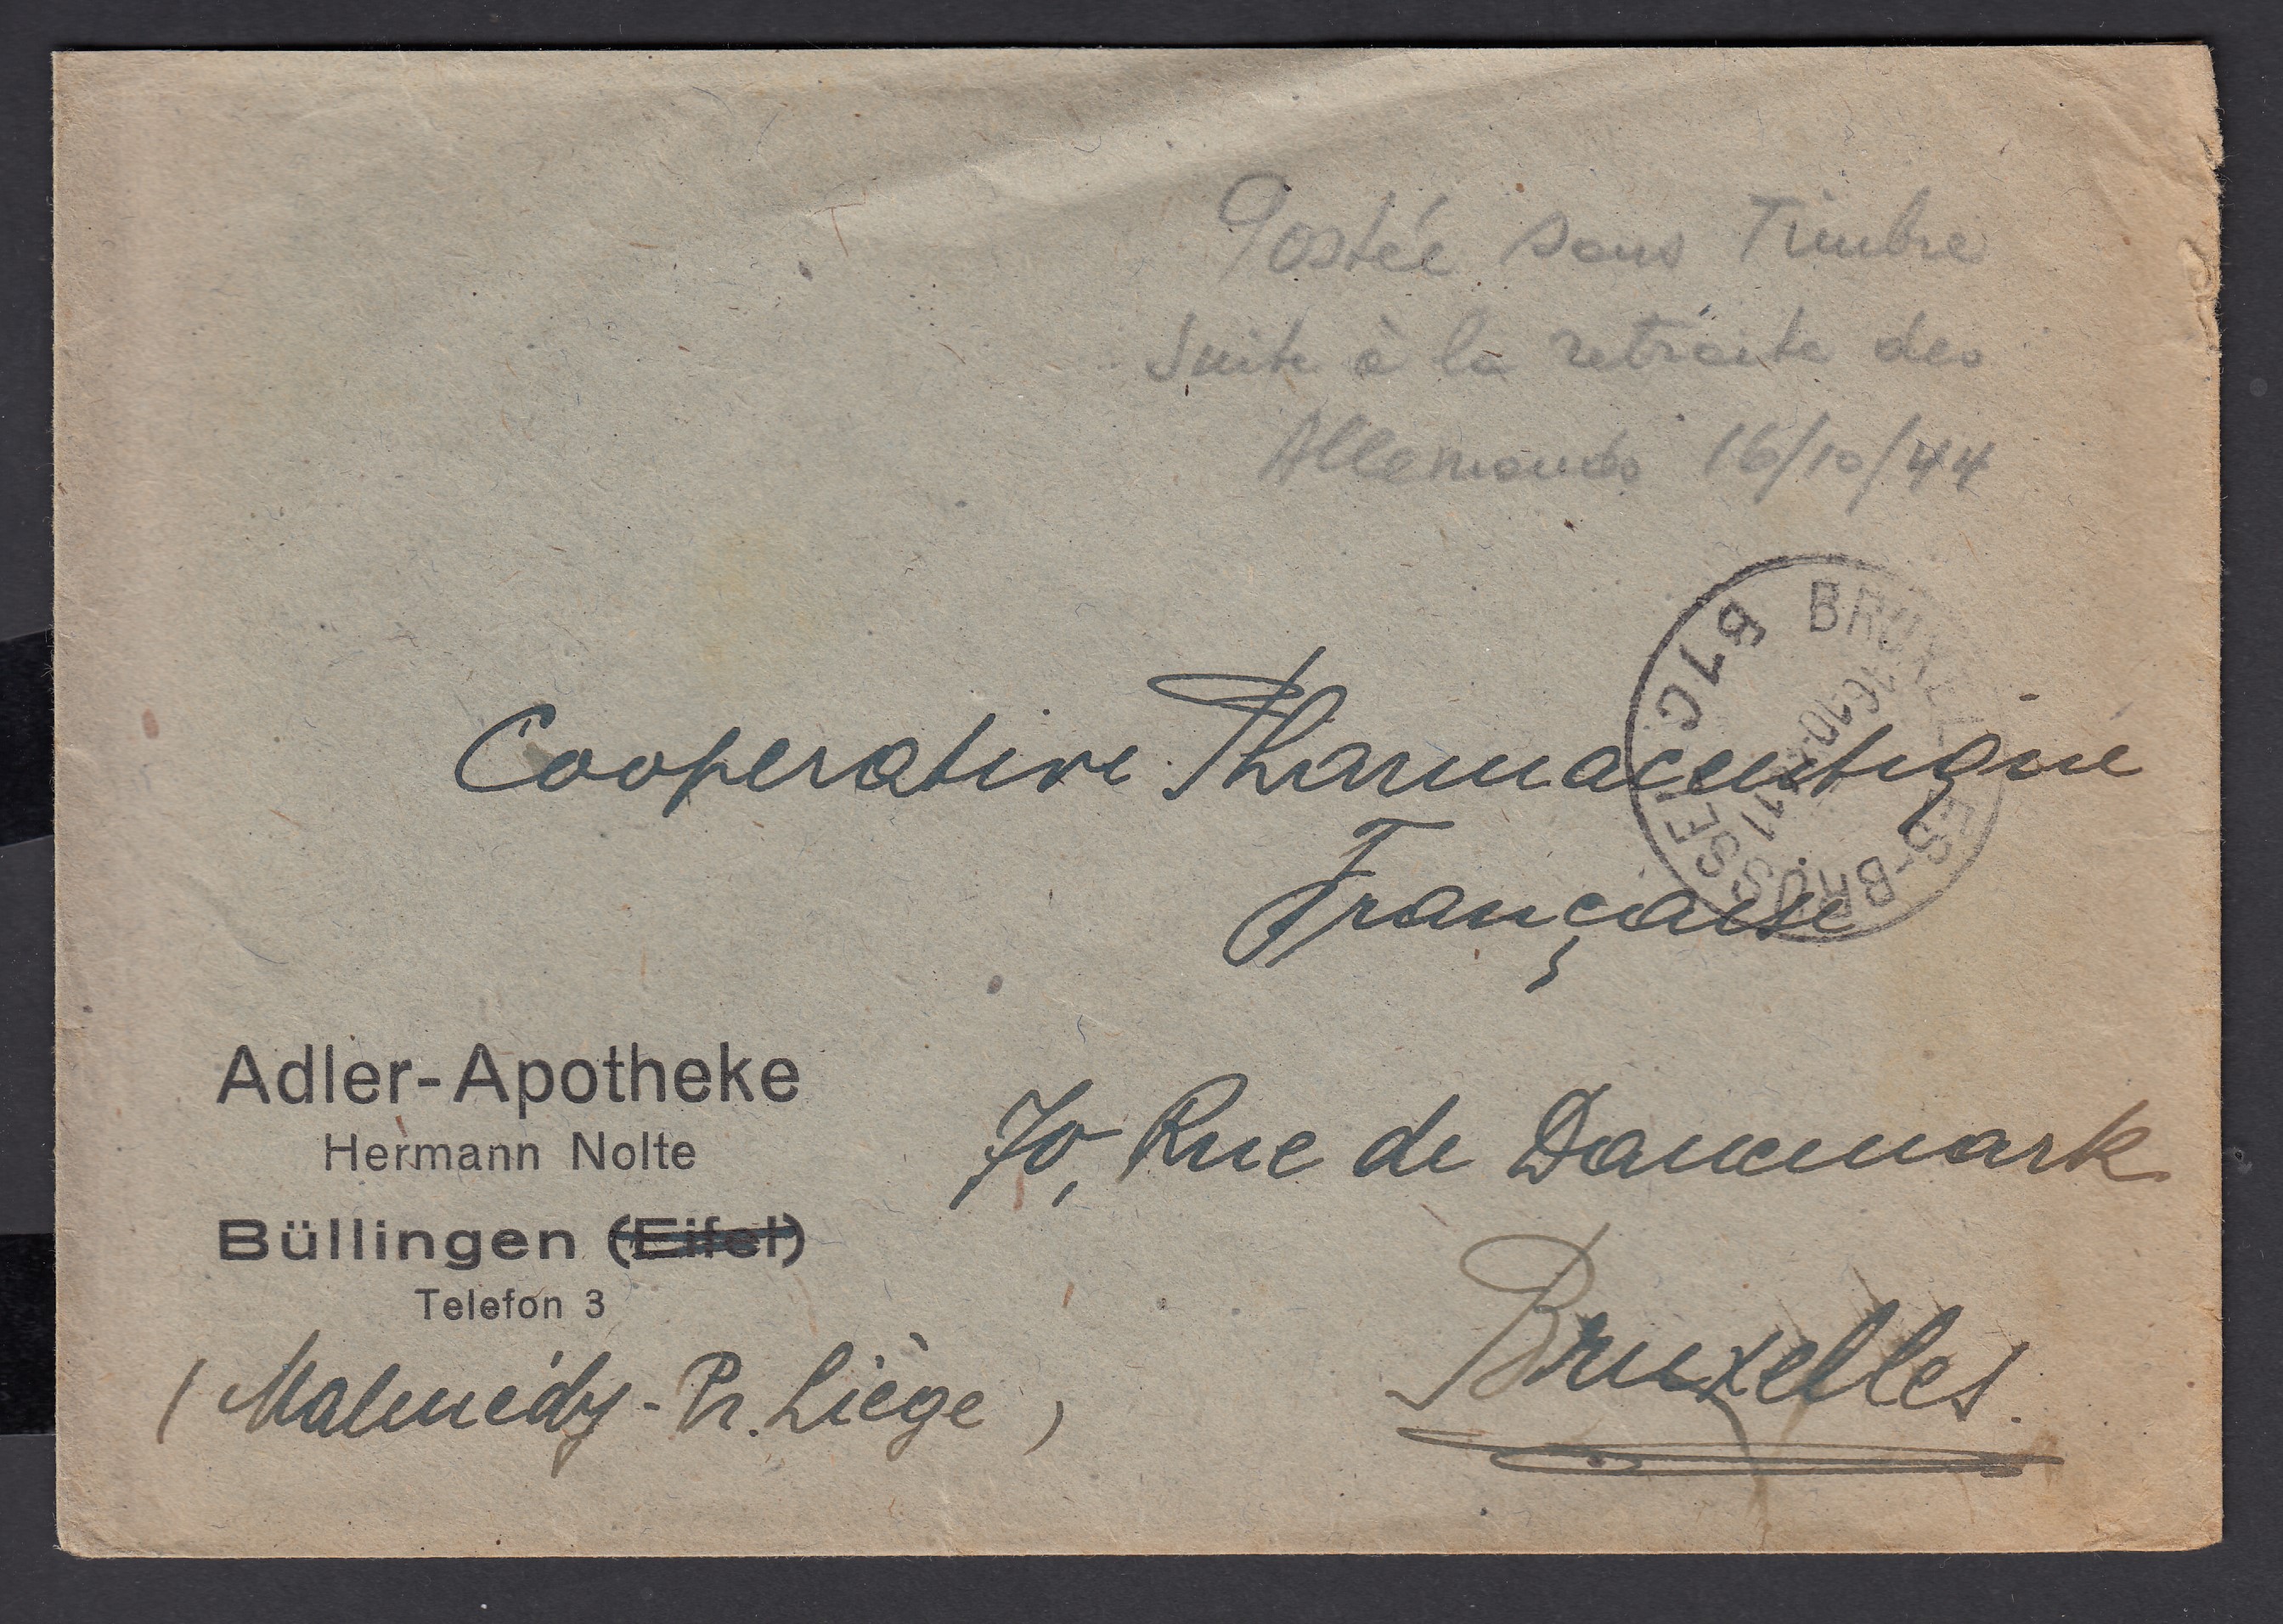 Postée sans Timbre
suite à la retraite des
Allemands 16/10/44
BRUXELLES-BRUSSEL
B1C
16 10
11
Cooperative Pharmaceutique
Française
70, Rue de Danemark
Bruxelles.
Adler-Apotheke
Hermann Nolte
Büllingen (Eifel)
Telefon 3
(Malmédy-Pr. Liège)